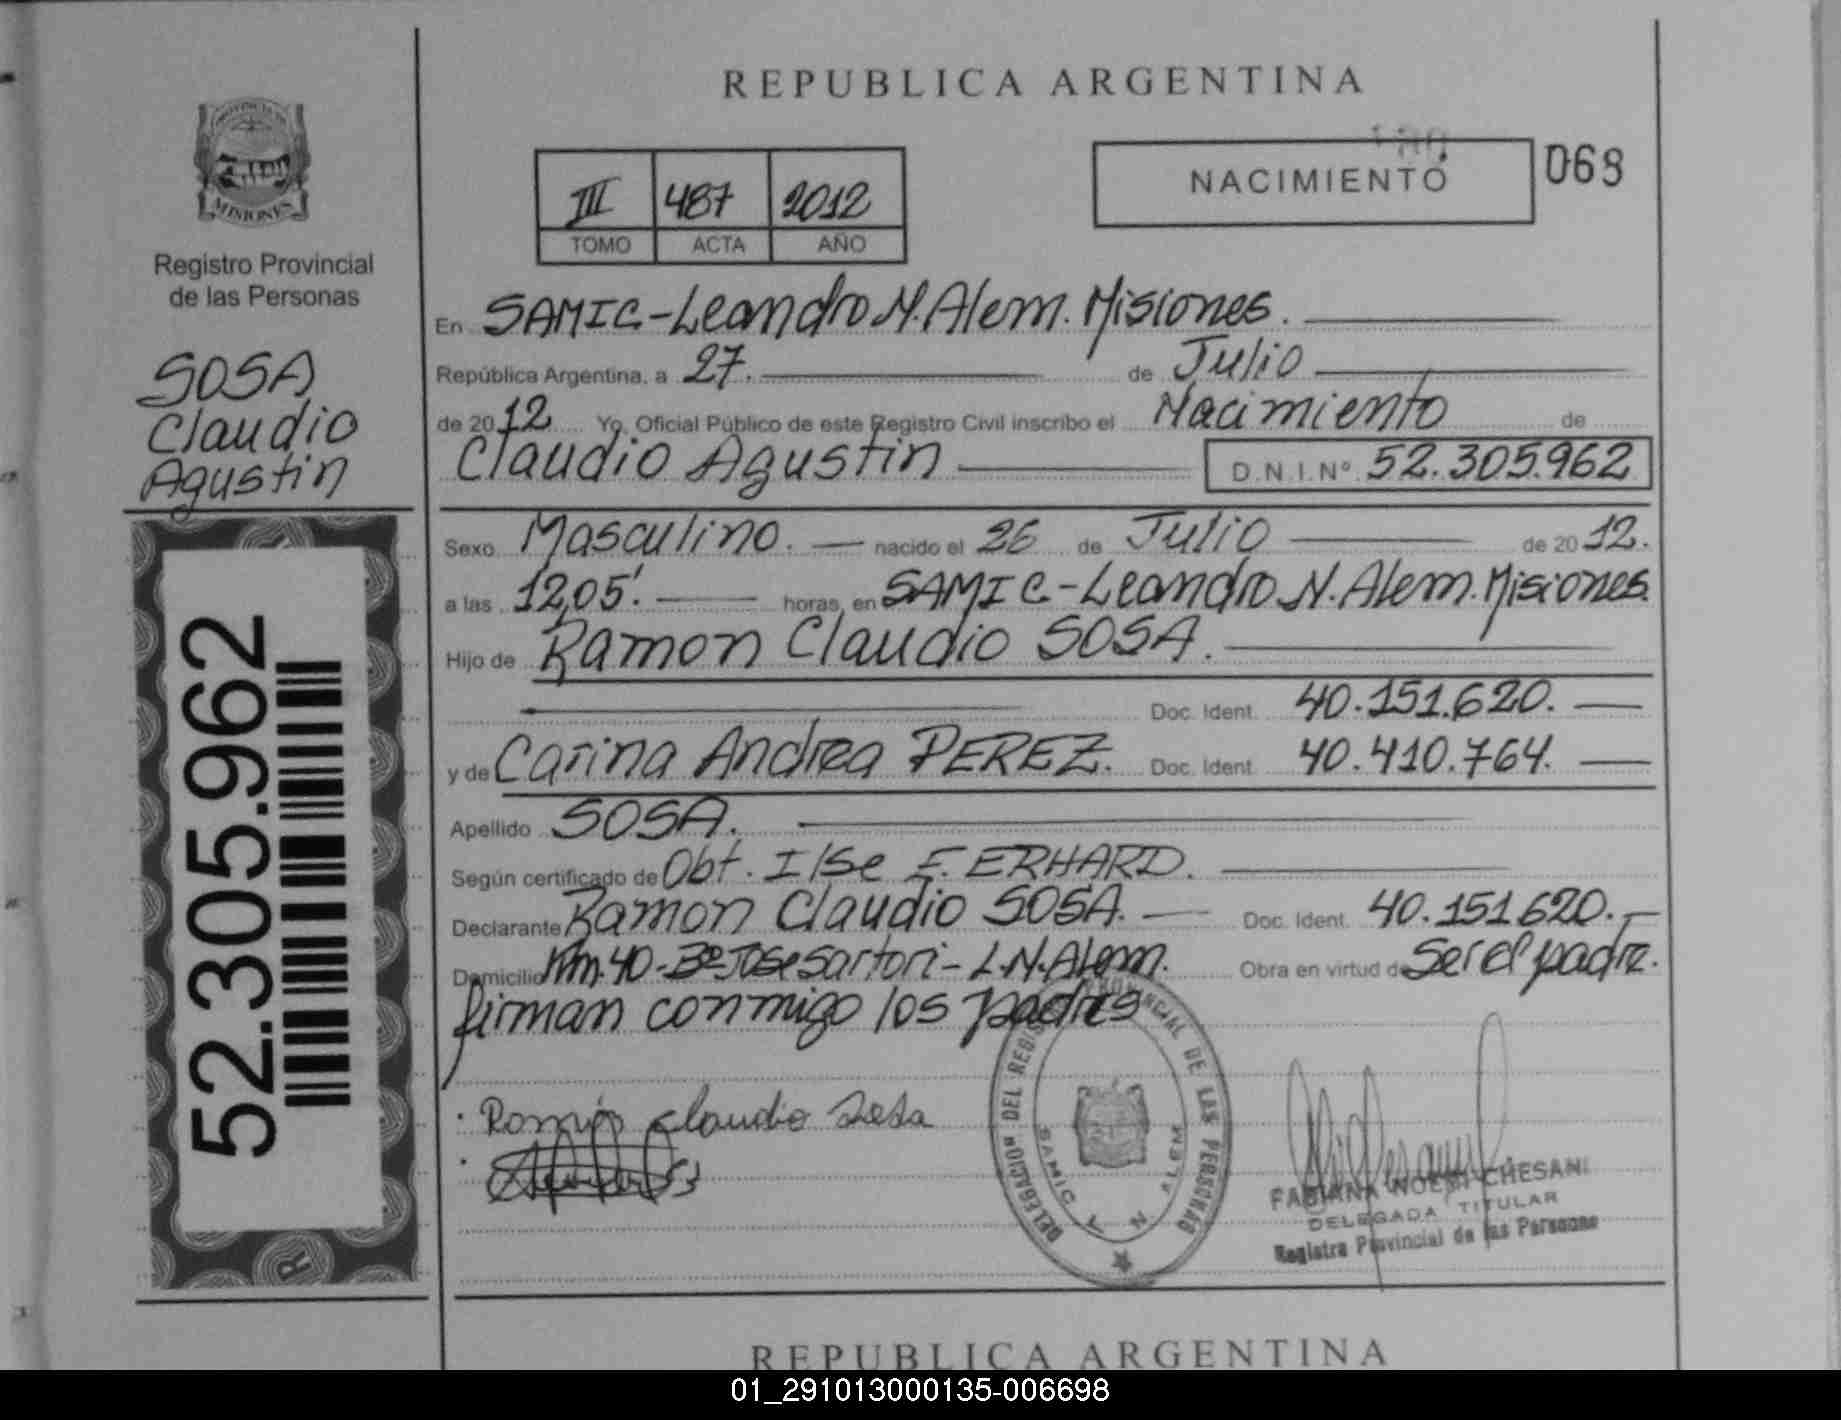 REPUBLICA ARGENTINA
PROVINCIA DE
MISIONES
Registro Provincial
de las Personas
SOSA
Claudio
Agustin
52.305.962
R
III 487 2012
TOMO ACTA AÑO
NACIMIENTO
068
En SAMIC-Leandro N. Alem. Misiones.
República Argentina, a 27. de Julio
de 2012 Yo, Oficial Público de este Registro Civil inscribo el Nacimiento de
Claudio Agustin D.N.I.Nº 52.305.962
Sexo Masculino. nacido el 26 de Julio de 2012.
a las 12,05'. horas, en SAMIC-Leandro N. Alem. Misiones.
Hijo de Ramon Claudio SOSA.
Doc. Ident. 40.151.620.
y de Carina Andrea PEREZ. Doc. Ident. 40.410.764.
Apellido SOSA.
Según certificado de Obt. Ilse E. ERHARD.
Declarante Ramon Claudio SOSA. Doc. Ident. 40.151620.
Domicilio Km.40-Bº Jose Sartori-L.N.Alem. Obra en virtud de Ser el padre.
firman conmigo los padres
Ramón Claudio Sosa
DELEGACION DEL REGISTRO PROVINCIAL DE LAS PERSONAS
SAMIC L N ALEM
FABIANA NOEMI CHESANI
DELEGADA TITULAR
Registro Provincial de las Personas
REPUBLICA ARGENTINA
01_291013000135-006698